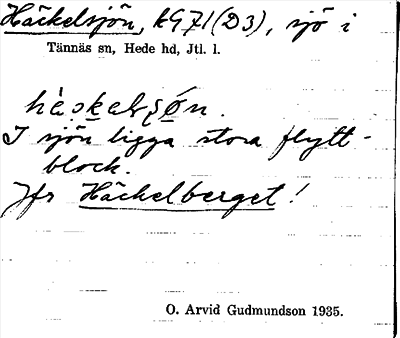 Häckelsjön, k971(D3), sjö i
Tännäs sn, Hede hd, Jtl. l.
I sjön ligga stora flytt-
block.
Jfr Häckelberget!
O. Arvid Gudmundson 1935.